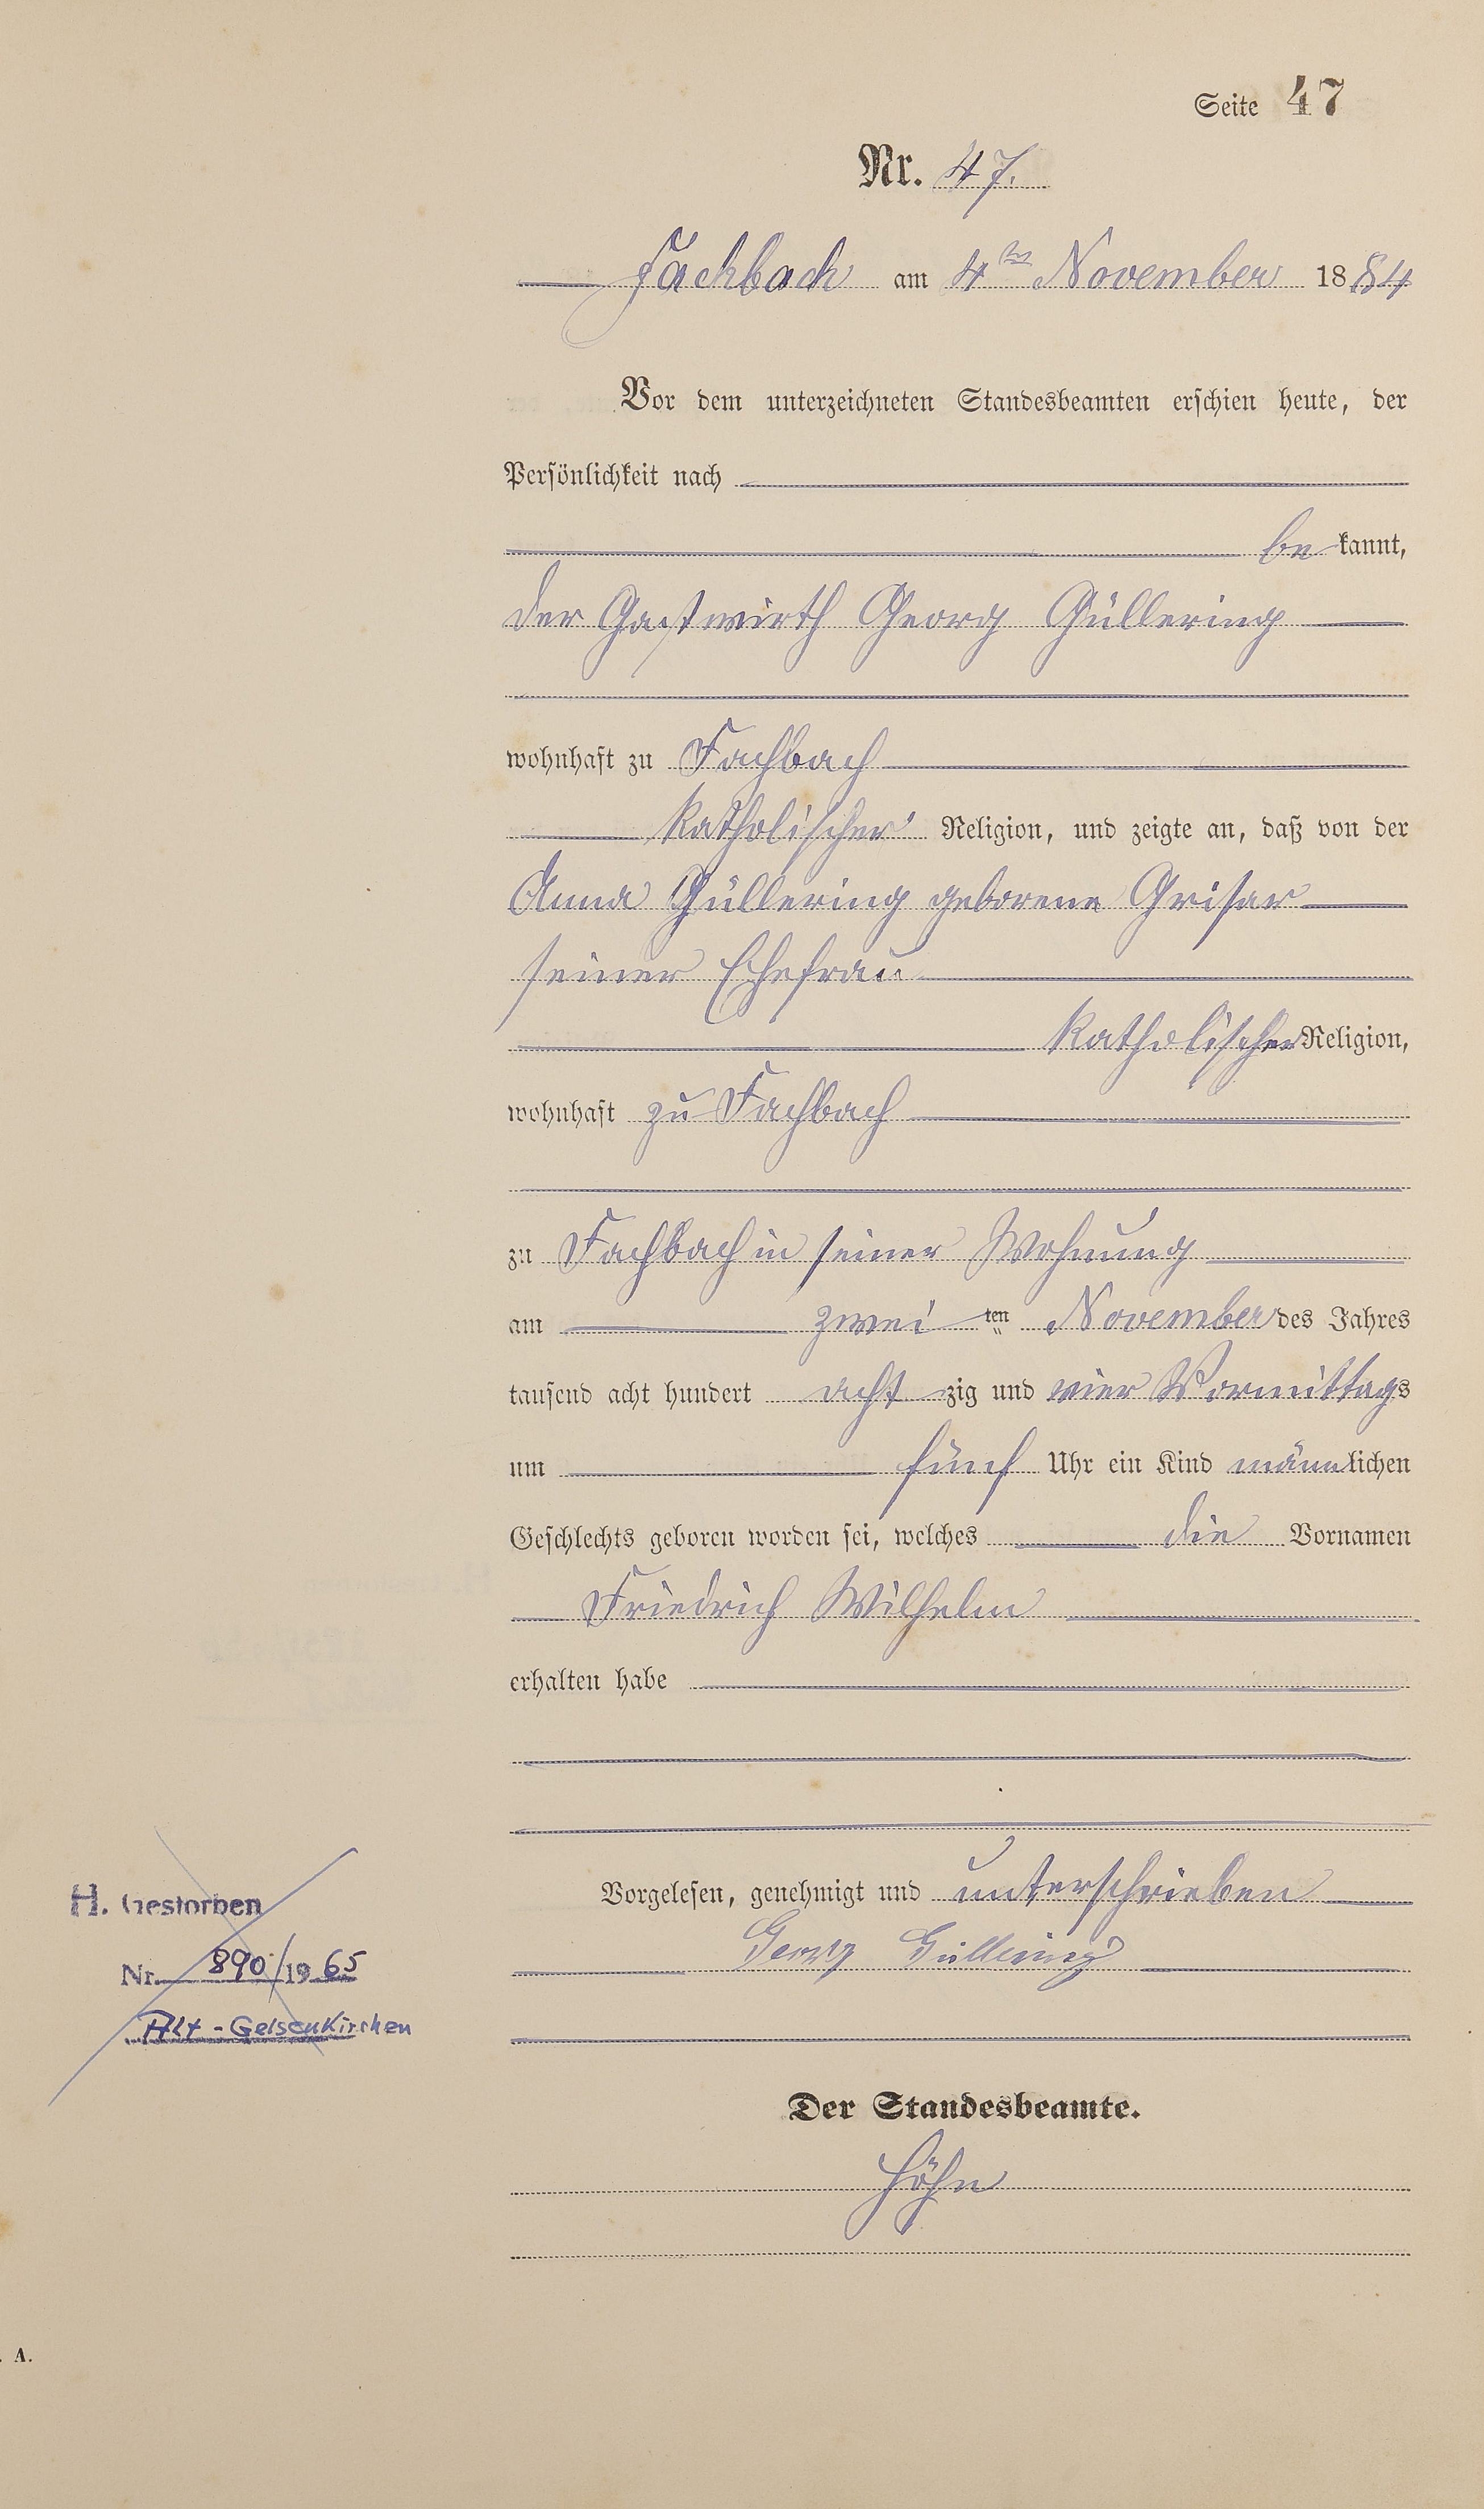 Seite 47
Nr. 47.
Fachbach am 4ten November 1884
Vor dem unterzeichneten Standesbeamten erschien heute, der
Persönlichkeit nach
be kannt,
der Gastwirth Georg Güllering
wohnhaft zu Fachbach
katholischer Religion, und zeigte an, daß von der
Anna Güllering geborene Grisar
seiner Ehefrau
katholischer Religion,
wohnhaft zu Fachbach
zu Fachbach in seiner Wohnung
am zwei ten November des Jahres
tausend acht hundert acht zig und vier Vormittags
um fünf Uhr ein Kind männlichen
Geschlechts geboren worden sei, welches die Vornamen
Friedrich Wilhelm
erhalten habe
Vorgelesen, genehmigt und unterschrieben
Georg Güllering
H. Gestorben
Nr. 890/1965
Alt-Gelsenkirchen
Der Standesbeamte.
Höhn
A.